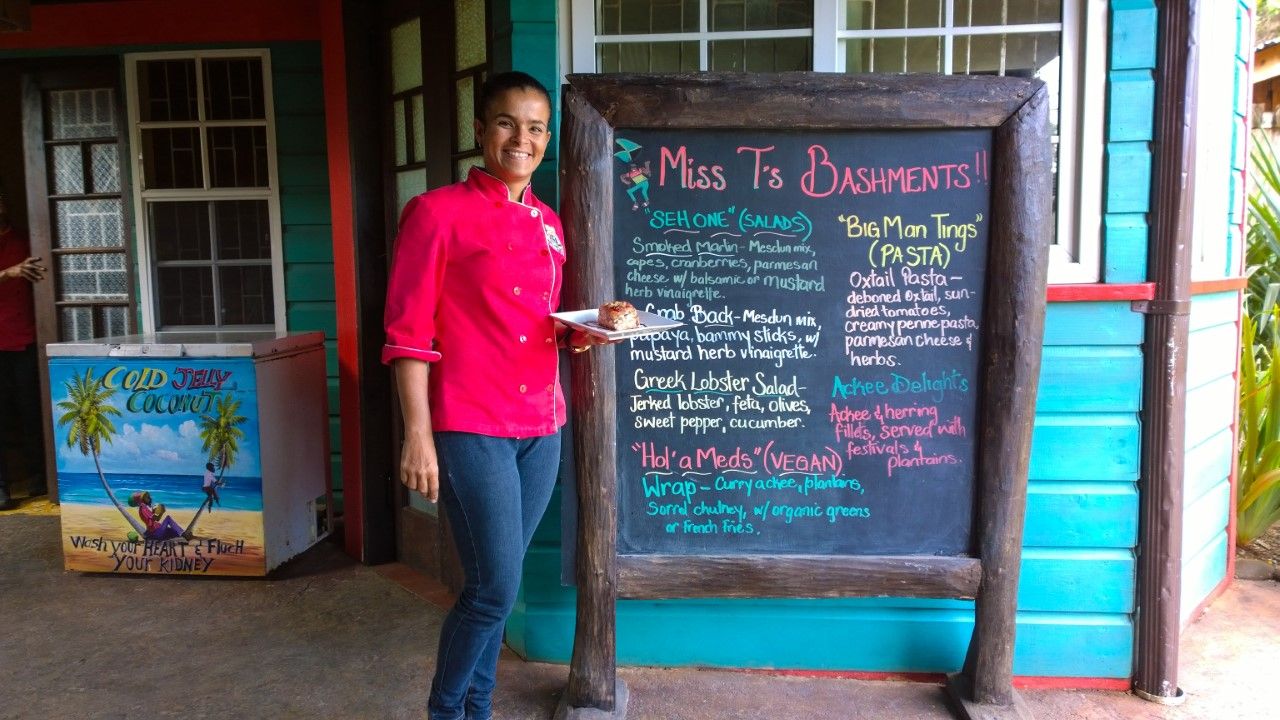 COLD JELLY
COCONUT
Wash your HEART & Fluch
YOUR KIDNEY
Miss T's Bashments!!
"SEH ONE" (SALADS)
Smoked Marlin - Mesclun mix,
capes, cranberries, parmesan
cheese w/ balsamic or mustard
herb vinaigrette.
Crab Back - Mesclun mix,
papaya, bammy slicks, w/
mustard herb vinaigrette.
Greek Lobster Salad-
Jerked lobster, feta, olives,
sweet pepper, cucumber.
"Hol' a Meds" (VEGAN)
Wrap - Curry ackee, plantains,
Sorrel chutney, w/ organic greens
or French Fries.
"Big Man Tings"
(PASTA)
Oxtail Pasta -
deboned oxtail, sun-
dried tomatoes,
creamy penne pasta,
parmesan cheese &
herbs.
Ackee Delights
Ackee & herring
fillets, served with
festivals &
plantains.